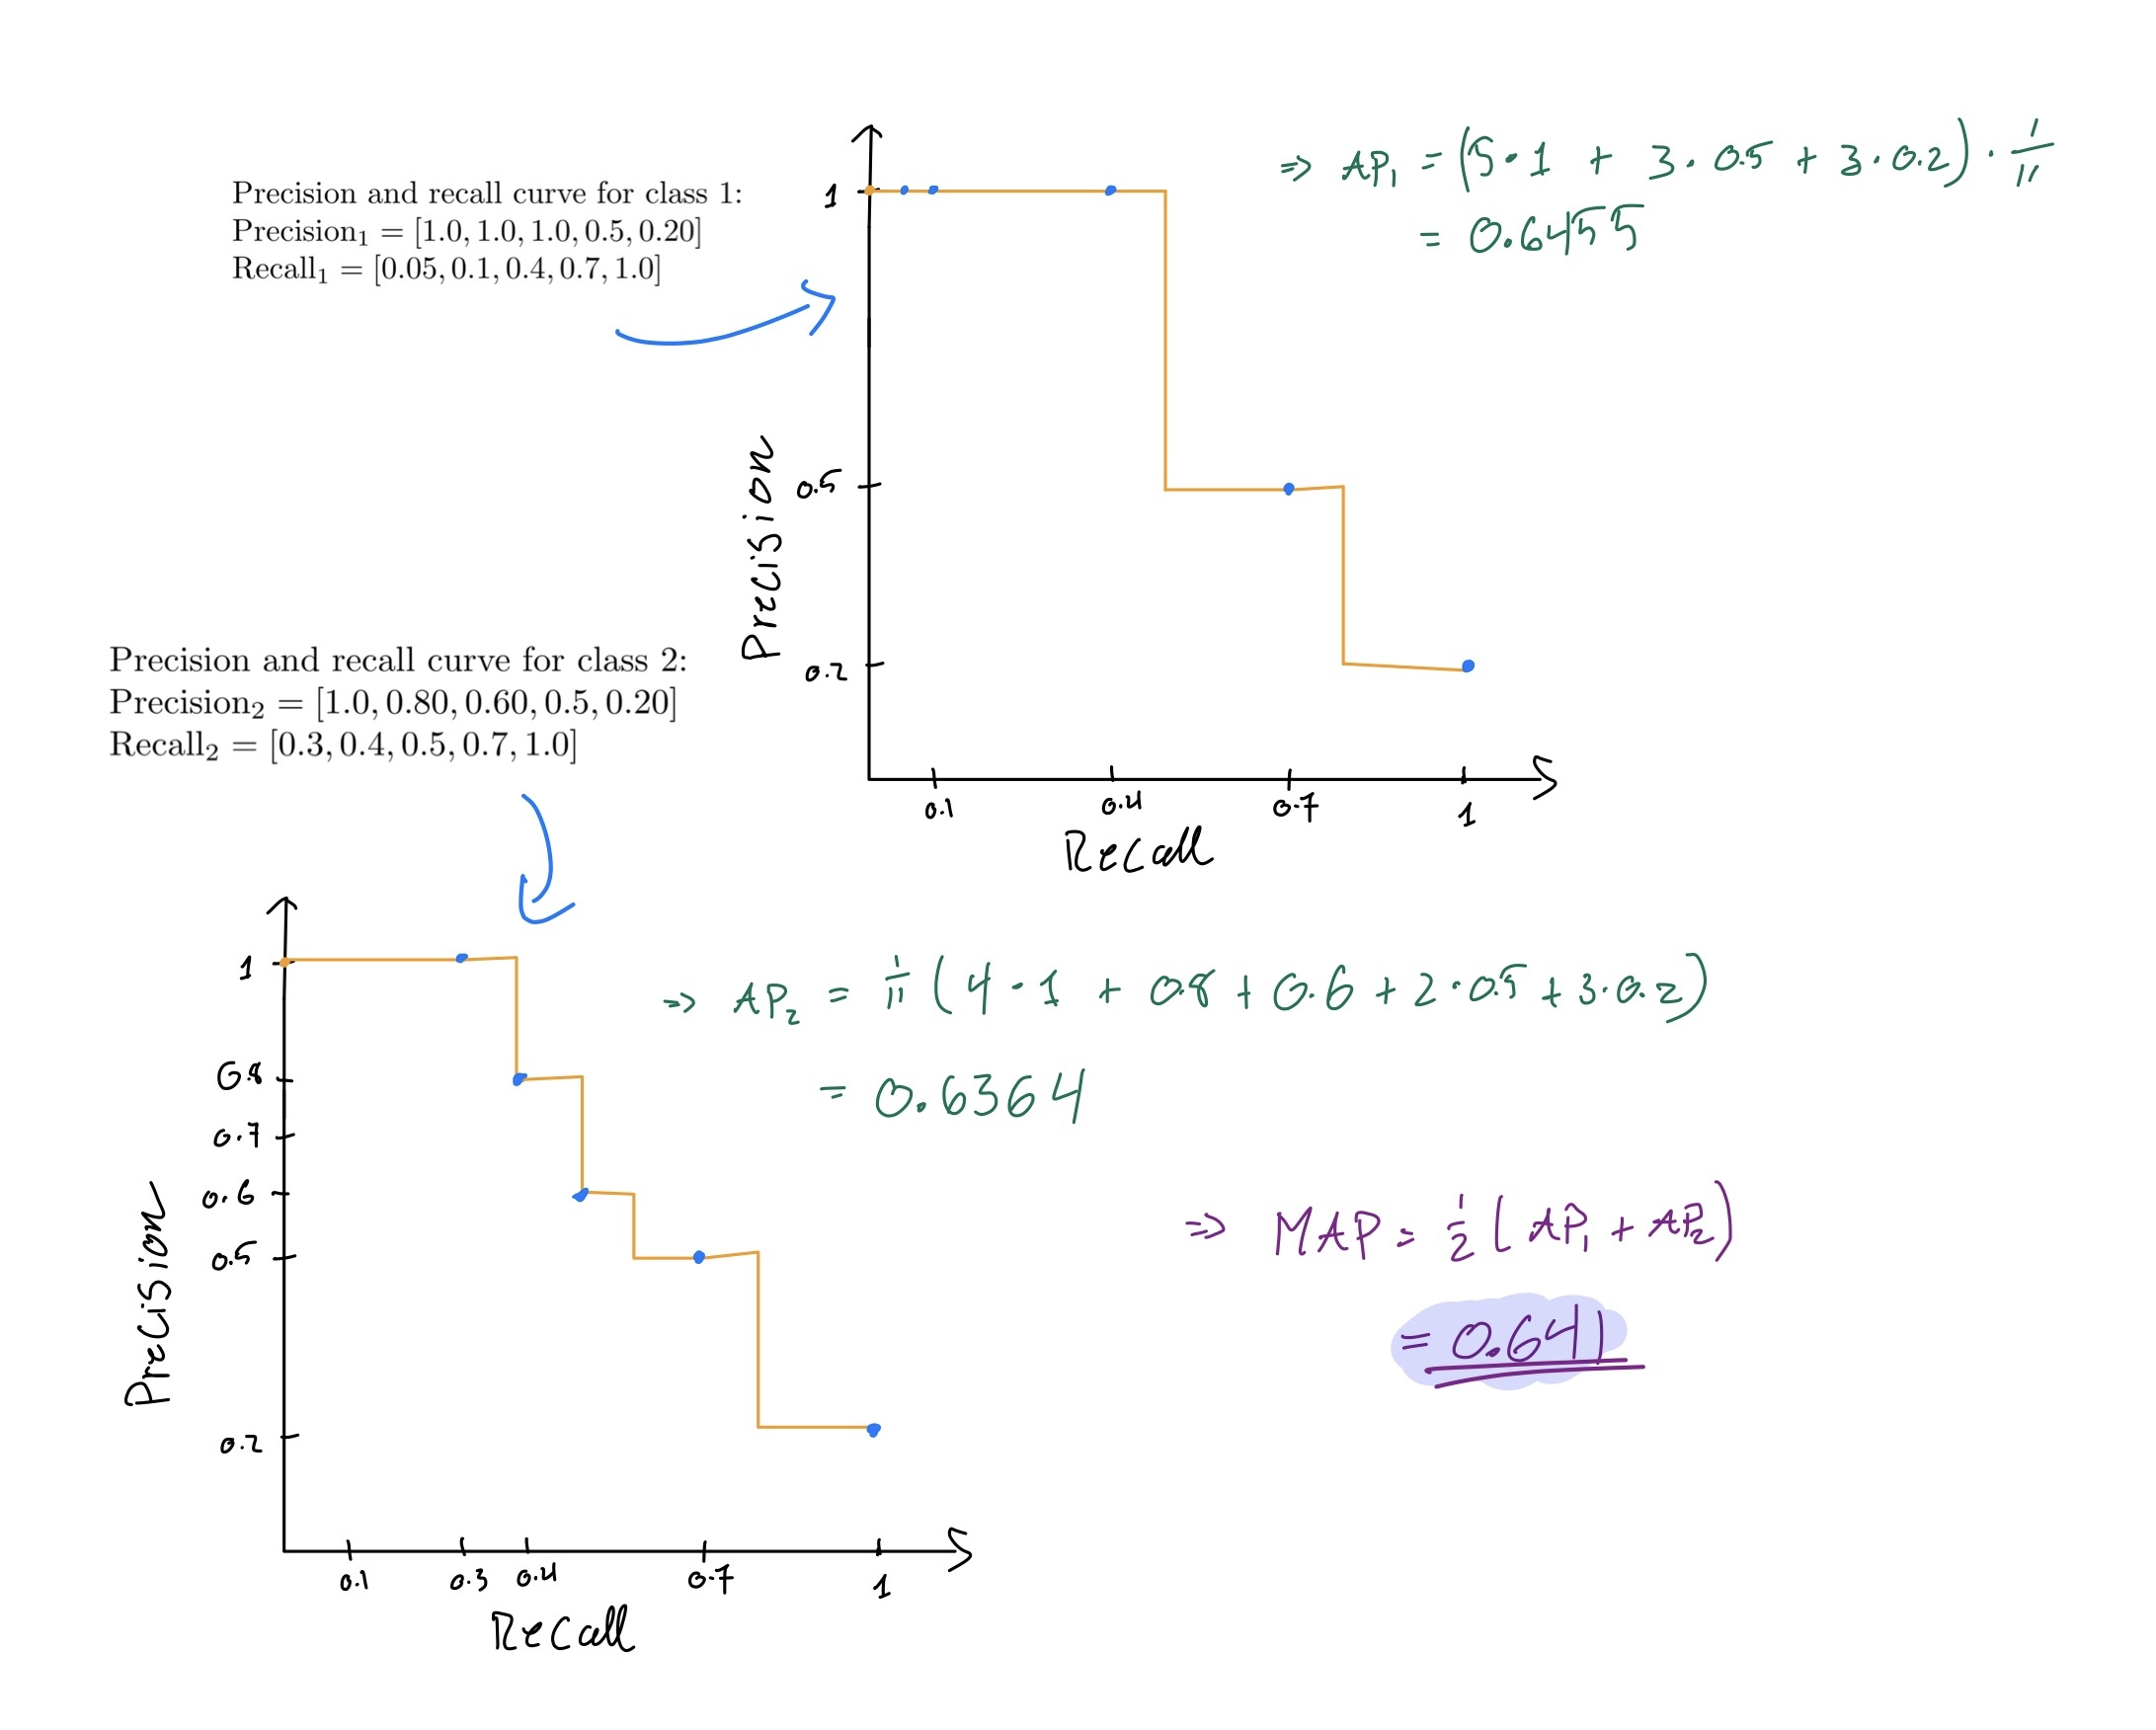 Precision and recall curve for class 1:
Precision₁ = [1.0, 1.0, 1.0, 0.5, 0.20]
Recall₁ = [0.05, 0.1, 0.4, 0.7, 1.0]
1
0.5
0.2
Precision
0.1 0.4 0.7 1
Recall
⇒ AP₁ = (5·1 + 3·0.5 + 3·0.2) · 1/11
= 0.6455
Precision and recall curve for class 2:
Precision₂ = [1.0, 0.80, 0.60, 0.5, 0.20]
Recall₂ = [0.3, 0.4, 0.5, 0.7, 1.0]
1
0.8
0.7
0.6
0.5
0.2
Precision
0.1 0.3 0.4 0.7 1
Recall
⇒ AP₂ = 1/11 (4·1 + 0.8 + 0.6 + 2·0.5 + 3·0.2)
= 0.6364
⇒ MAP = 1/2 (AP₁ + AP₂)
= 0.641